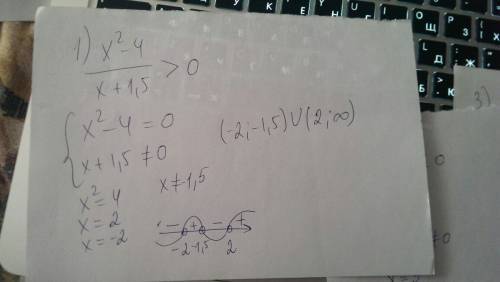 1) (x²-4)/(x+1,5) > 0
{ x²-4=0
x+1,5≠0
(-2;-1,5)∪(2;∞)
x²=4
x≠1,5
x=2
x=-2
- + - +
-2 -1,5 2
3)
0
≠0